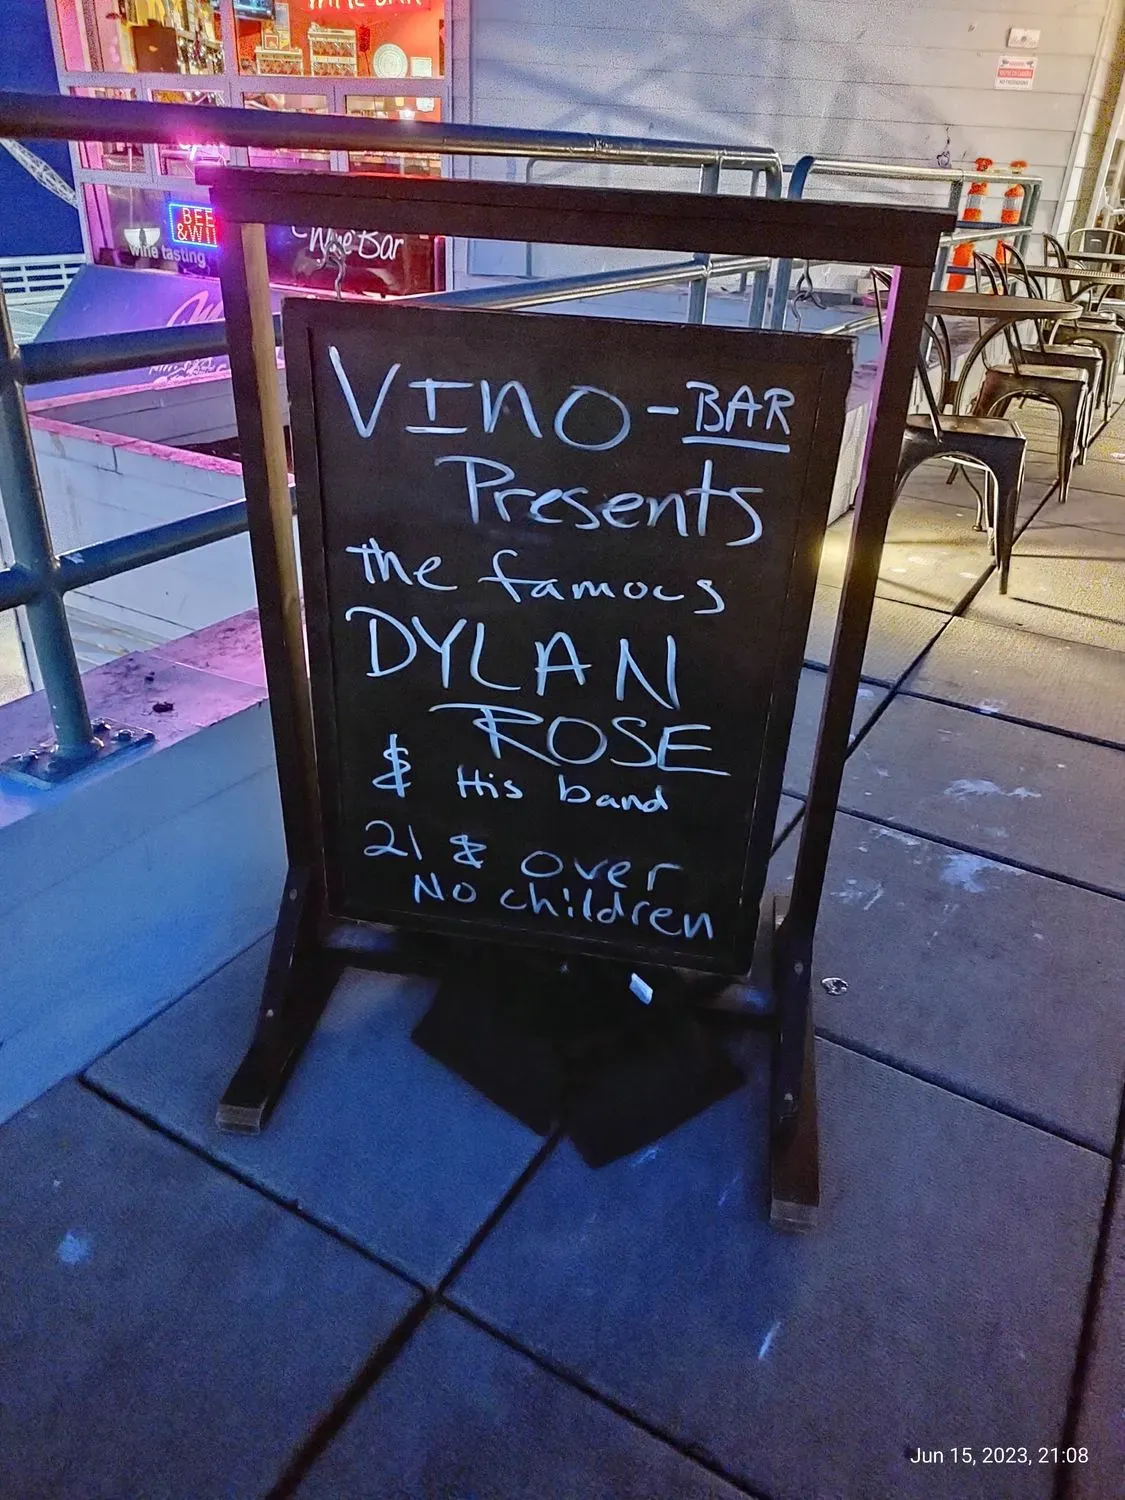 WINE BAR
BEE
&WI
wine tasting
Wine Bar
VINO-BAR
Presents
the famous
DYLAN
ROSE
& His band
21 & over
No children
Jun 15, 2023, 21:08